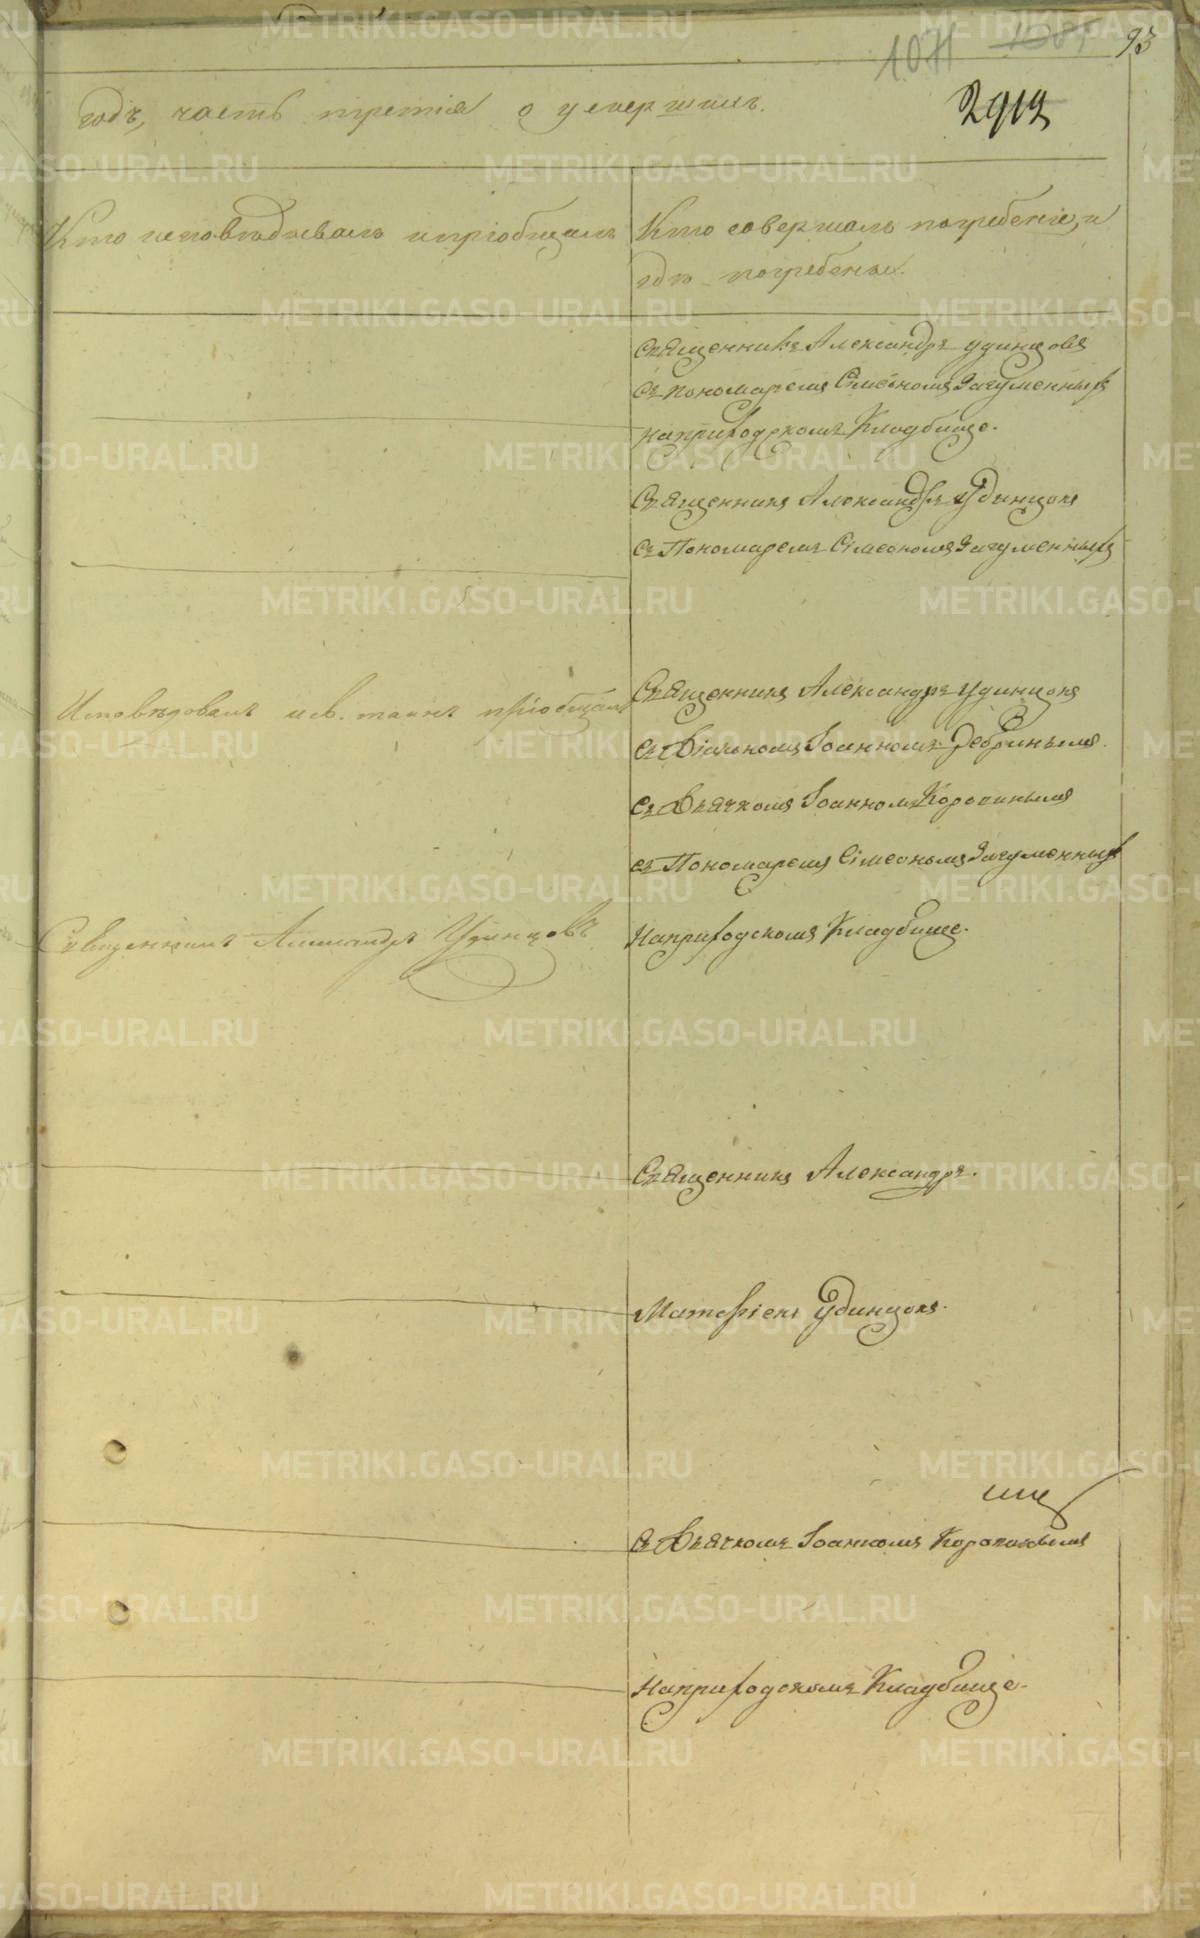 93
1071
2912
годъ, часть третія о умершихъ.
Кто исповѣдывалъ и пріобщалъ
Кто совершалъ погребеніе, и
гдѣ погребены.
Священникъ Александръ Удинцовъ
съ Пономаремъ Сімеономъ Загуменныхъ
на приходскомъ Кладбище.
Священникъ Александръ Удинцовъ
съ Пономаремъ Сімеономъ Загуменныхъ
Исповѣдовалъ и св. таинъ пріобщалъ
Священникъ Александръ Удинцовъ
съ Діакономъ Іоанномъ
съ Дьячкомъ Іоанномъ Коровинымъ
съ Пономаремъ Сімеономъ Загуменныхъ
Священникъ Александръ Удинцовъ
на приходскомъ Кладбище.
Священникъ Александръ.
Матѳіевъ Удинцовъ.
съ Дьячкомъ Іоанномъ Коровинымъ
на приходскомъ Кладбище.
METRIKI.GASO-URAL.RU